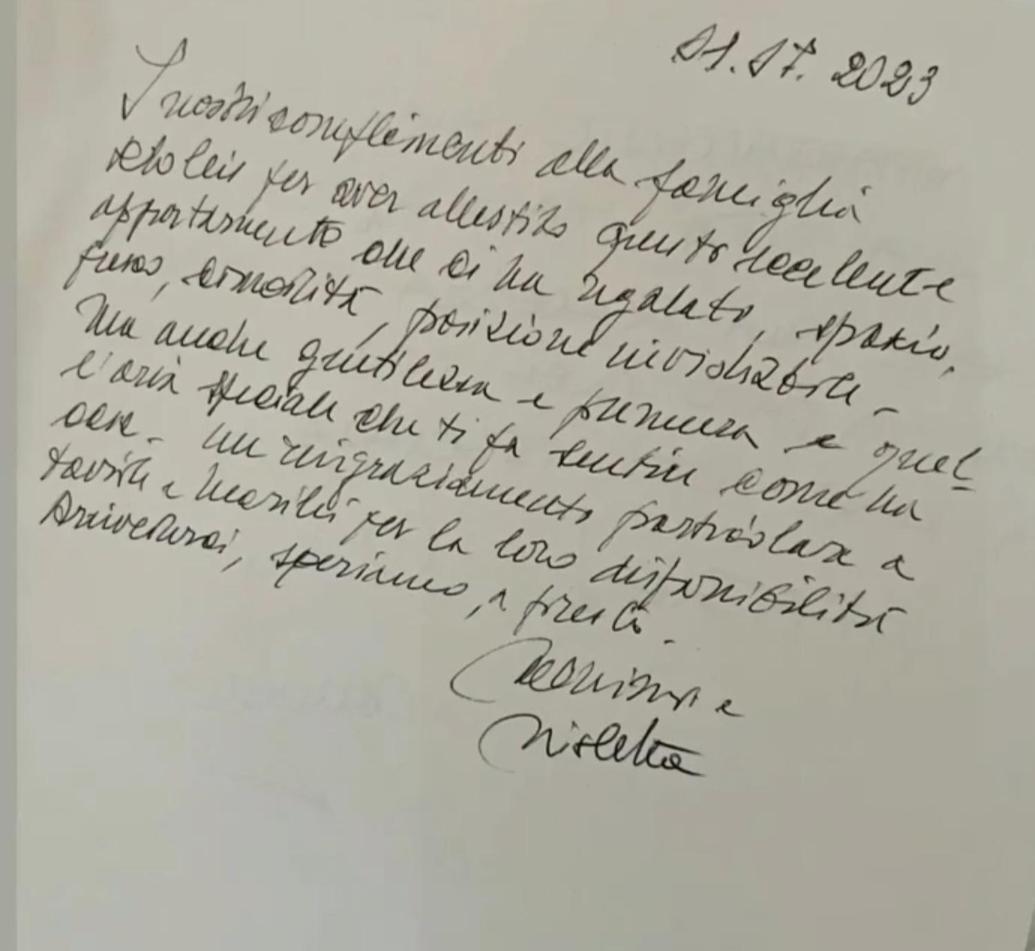 2023
I nostri complimenti alla famiglia
per aver allestito questo eccellente
appartamento che ci ha regalato, spazio,
comodità, posizione invidiabile.
Ma anche gentilezza e premura e quel
l'aria speciale che ti fa sentire come ha
casa. Un ringraziamento particolare a
e per la loro disponibilità
Arrivederci, speriamo, a presto.
e
Nicoletta